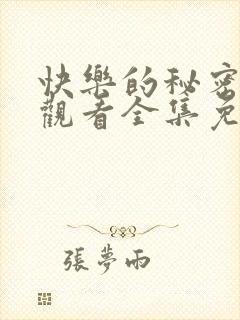 快樂的秘密
觀看全集免
張夢雨